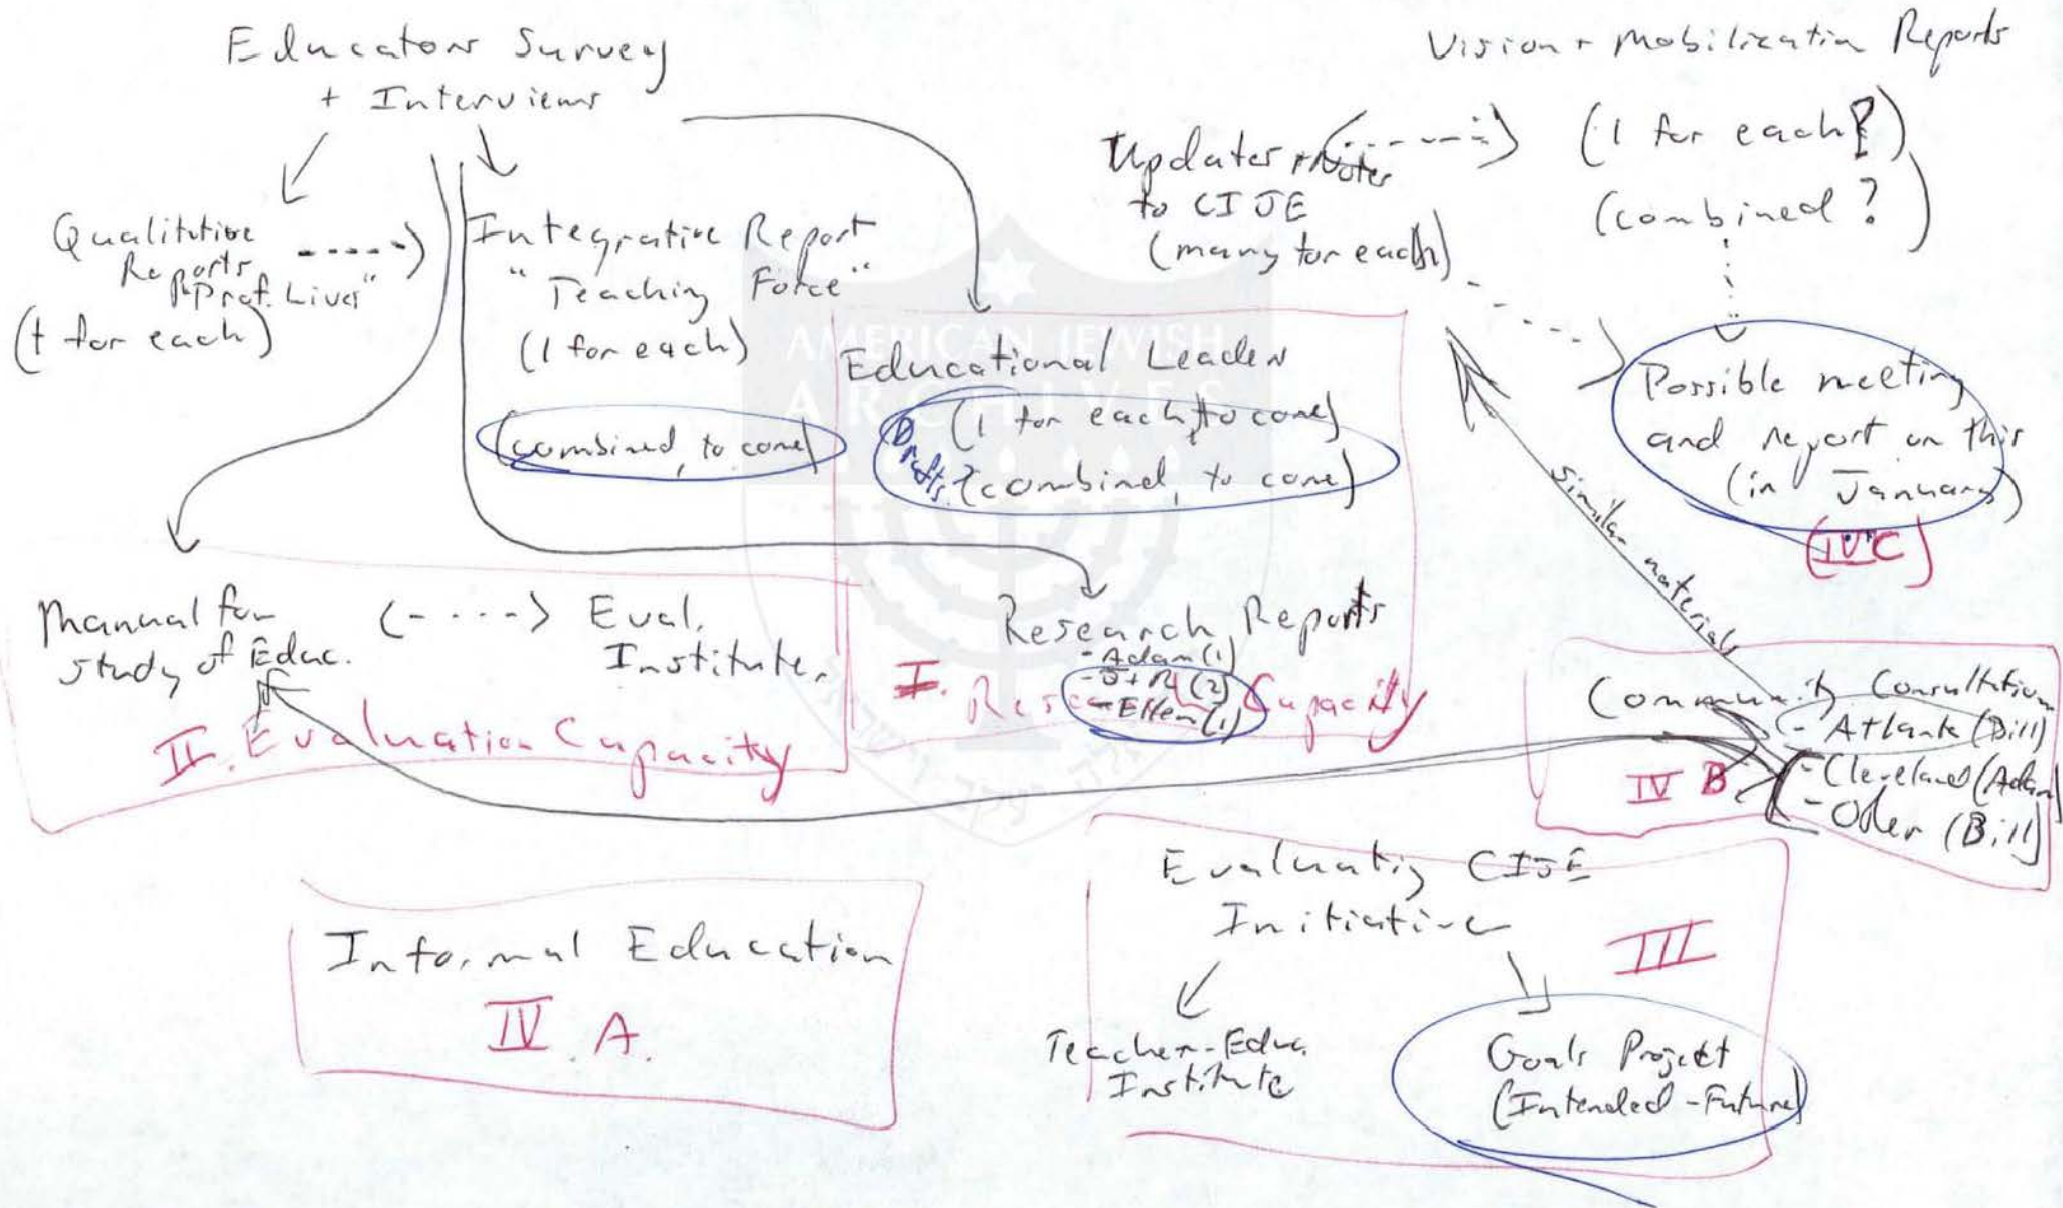 Educators Survey
+ Interviews
Vision + Mobilization Reports
(1 for each?)
(combined?)
Updates + Notes
to CIJE
(many for each)
Qualitative
Reports
"Prof. Lives"
(1 for each)
Integrative Report
"Teaching Force"
(1 for each)
(combined, to come)
AMERICAN JEWISH
ARCHIVES
Educational Leaders
(1 for each, to come)
Drafts:
(combined, to come)
Possible meeting
and report on this
(in January)
(IV C)
similar materials
Manual for
Study of Educ.
Eval.
Institute.
II. Evaluation Capacity
Research Reports
- Adam (1)
- + R (2)
- Ellen (1)
I. Research Capacity
Community Consultation
- Atlanta (Bill)
- Cleveland (Adam)
- Other (Bill)
IV B
Informal Education
IV. A.
Evaluating CIJE
Initiative
III
Teacher-Educ.
Institute
Goals Project
(Intended - Future)